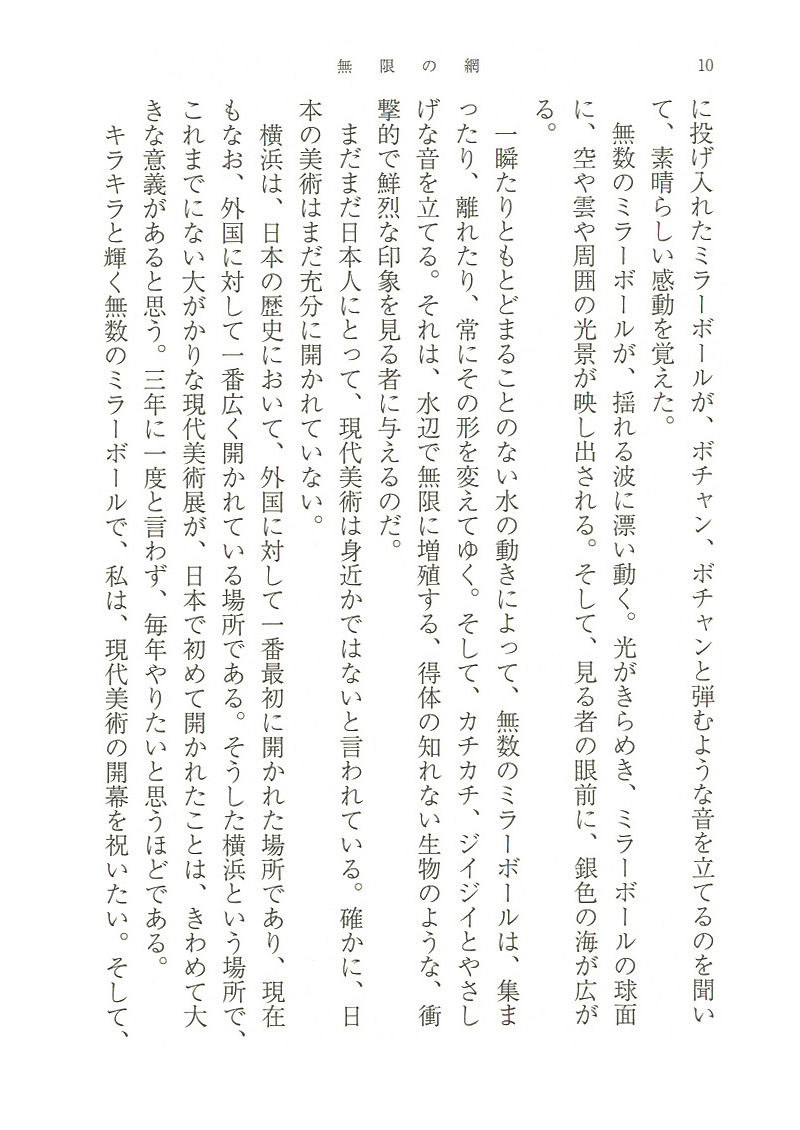 無限の網
10
に投げ入れたミラーボールが、ボチャン、ボチャンと弾むような音を立てるのを聞い
て、素晴らしい感動を覚えた。
無数のミラーボールが、揺れる波に漂い動く。光がきらめき、ミラーボールの球面
に、空や雲や周囲の光景が映し出される。そして、見る者の眼前に、銀色の海が広が
る。
一瞬たりともとどまることのない水の動きによって、無数のミラーボールは、集ま
ったり、離れたり、常にその形を変えてゆく。そして、カチカチ、ジイジイとやさし
げな音を立てる。それは、水辺で無限に増殖する、得体の知れない生物のような、衝
撃的で鮮烈な印象を見る者に与えるのだ。
まだまだ日本人にとって、現代美術は身近かではないと言われている。確かに、日
本の美術はまだ充分に開かれていない。
横浜は、日本の歴史において、外国に対して一番最初に開かれた場所であり、現在
もなお、外国に対して一番広く開かれている場所である。そうした横浜という場所で、
これまでにない大がかりな現代美術展が、日本で初めて開かれたことは、きわめて大
きな意義があると思う。三年に一度と言わず、毎年やりたいと思うほどである。
キラキラと輝く無数のミラーボールで、私は、現代美術の開幕を祝いたい。そして、